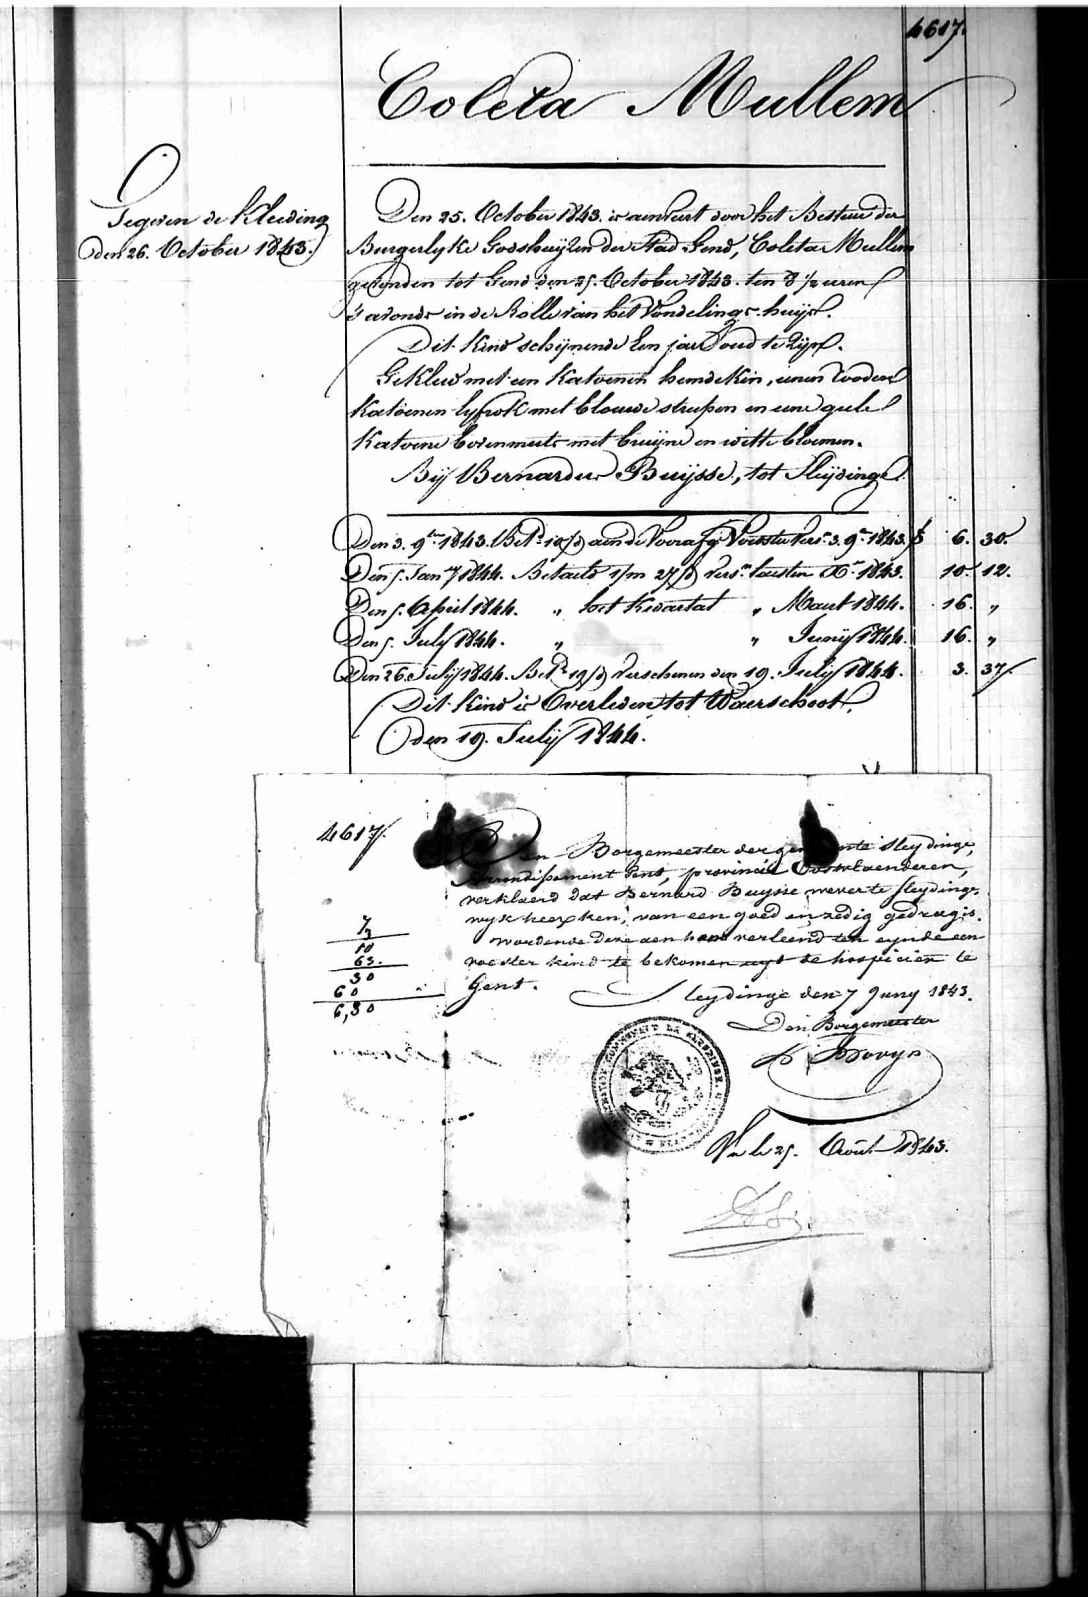 4617.
Coleta Mullem
Gegeven de Kleeding
den 26. October 1843.
Den 25. October 1843. is aenveirt door het Bestuur der
Burgerlyke Godshuijzen der Stad Gend, Coleta Mullem
gevonden tot Gend den 25. October 1843. ten 8 1/2 uren
's avonds in de Rolle van het Vondelings-huijs.
Dit Kind schijnende Een jaar oud te Zijn.
Gekleed met een Katoenen hemdekin, eenen rooden
Katoenen lyfrok met blauwe streepen en eene geele
Katoene bovenmuts met bruijne en witte bloemen.
Bij Bernardus Buijsse, tot Sleijdinge
Den 3. 9bre 1843. Bet. 10/m aen de Voorafg. Vers. 3. 9bre 1843. f 6. 30.
Den 5. Jany 1844. Betaeld 1/m 27/d Vers. laesten Xbr 1843. 10. 12.
Den 5. April 1844. „ Sort Kwartal „ Maart 1844. 16. „
Den 5. July 1844. „ „ Junij 1844. 16. „
Den 26. Julij 1844. Bet. 19/d Verschenen den 19. Julij 1844. 3. 37.
Dit Kind is Overleden tot Waerschoot,
den 19. Julij 1844.
4617.
Den Borgemeester der gemeente Sleydinge,
Arrondissement Gent, provincie Oostvlaenderen,
verklaerd dat Bernard Buysse wever te sleydinge
wyk heexken, van een goed en zedig gedrag is.
wordende deze aen hem verleend ten eynde een
voester kind te bekomen uyt de hospicien te
Gent.
7
3
10
63.
30
60
6,30
Sleydinge den 7 Juny 1843.
Den Borgemeester
Vu le 25. Août 1843.